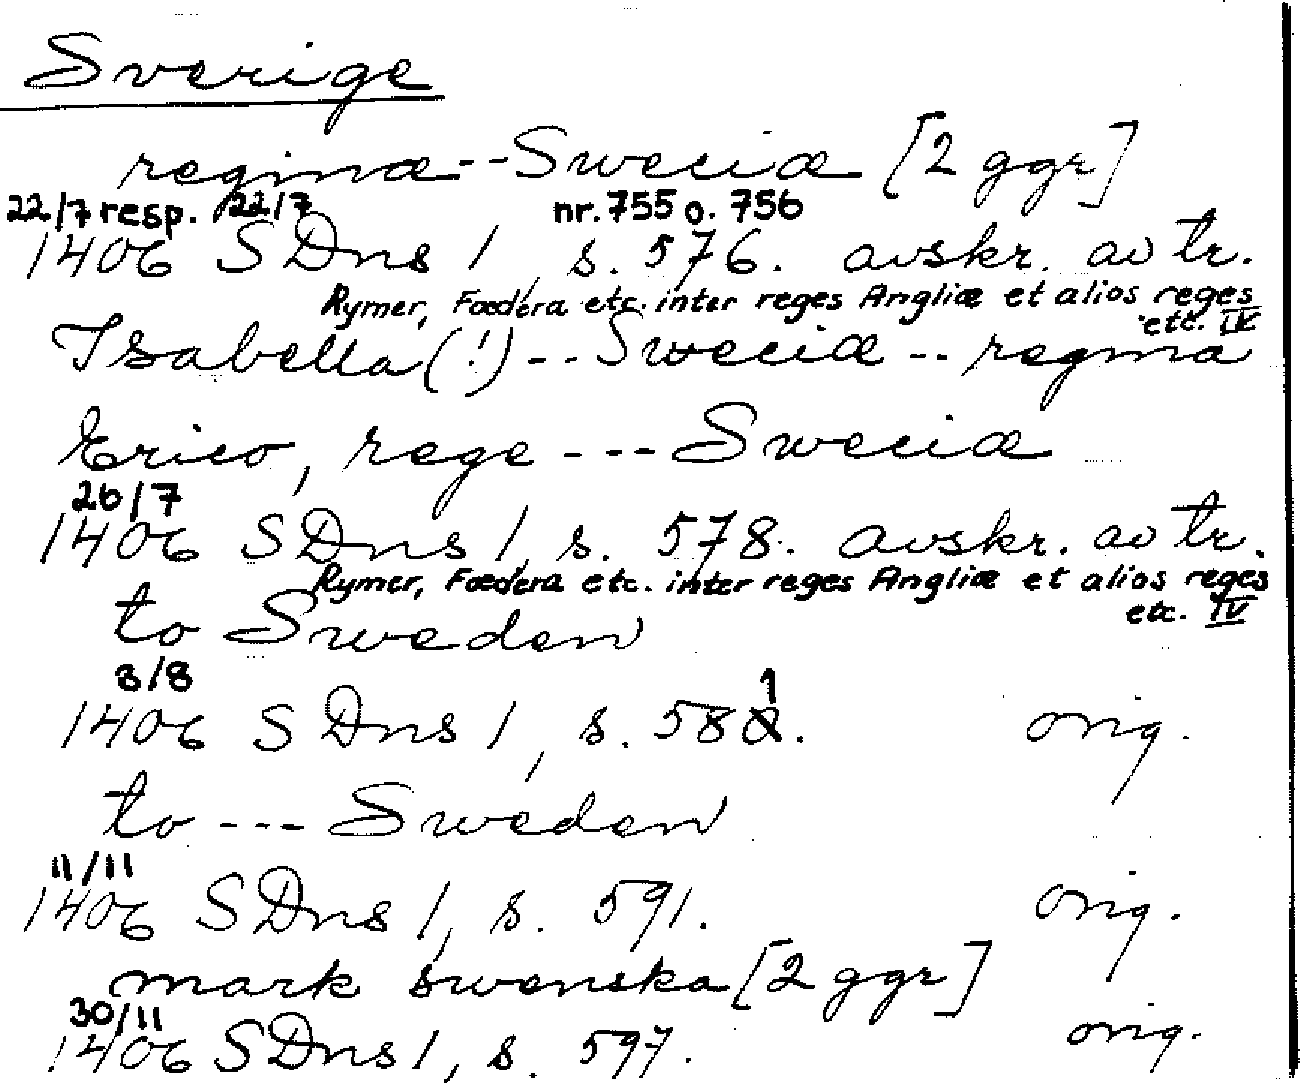 Sverige
reginæ -- Sweciæ [2 ggr]
22/7 resp. 22/7 nr. 755 o. 756
1406 SDns 1, s. 576. avskr. av tr.
Rymer, Fœdera etc. inter reges Angliæ et alios reges
etc. IV
Isabella (!) -- Sweciæ -- regina
Erico, rege --- Sweciæ
26/7
1406 SDns 1, s. 578. avskr. av tr.
Rymer, Fœdera etc. inter reges Angliæ et alios reges
etc. IV
to Sweden
3/8
1
1406 SDns 1, s. 582. orig.
to --- Sweden
11/11
1406 SDns 1, s. 591. orig.
mark swenska [2 ggr]
30/11
1406 SDns 1, s. 597. orig.